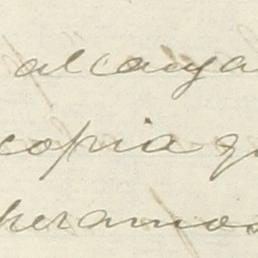 alcanza
copia q
heramos